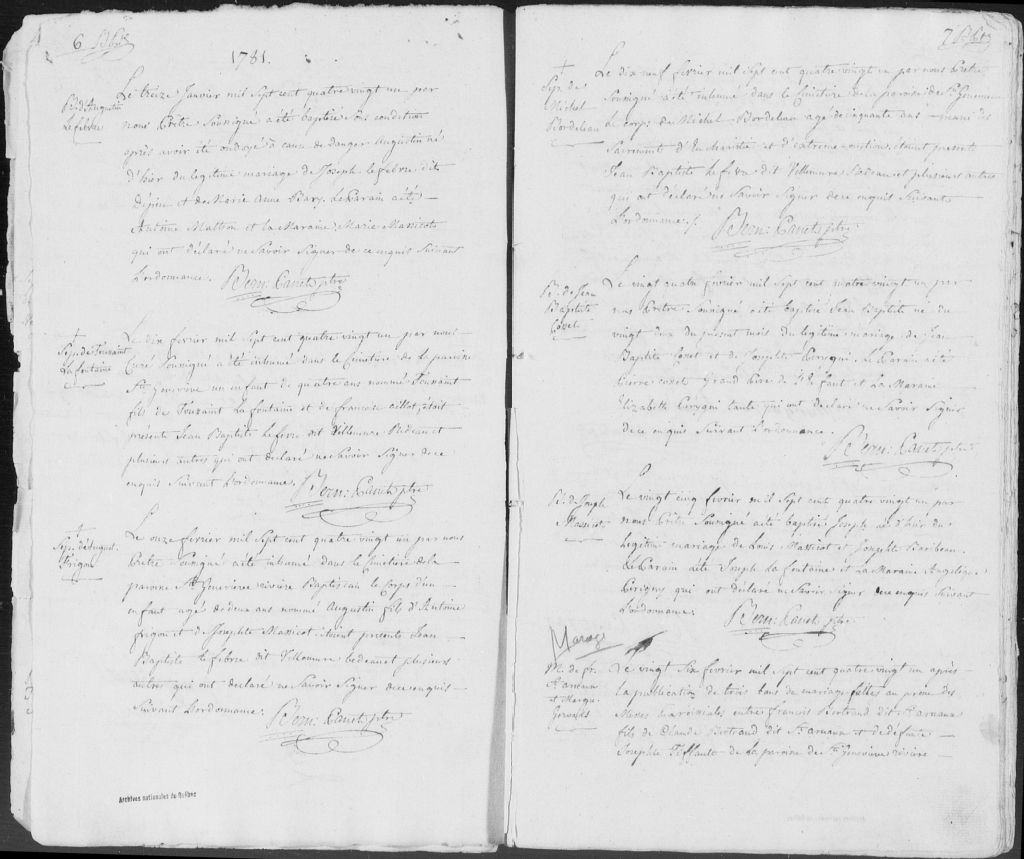 6
1781.
Bt. d'Augustin
Lefebvre
Le treize Janvier mil Sept cent quatre vingt un par
nous Prêtre Soussigné a été baptisé Sous condition
après avoir été ondoyé à cause de danger Augustin né
d'hier du legitime mariage de Joseph Lefebre dit
et de Marie Anne Le Parain a été
Antoine et la Maraine Marie Massicot
qui ont déclaré ne Savoir Signer de ce enquis Suivant
L'ordonnance.
ptre
Sep. de Toussaint
La fontaine
Le dix fevrier mil Sept cent quatre vingt un par nous
Curé Soussigné a été inhumé dans le Cimetiere de la paroisse
Ste Genevieve un enfant de quatre ans nommé Toussaint
fils de Toussaint La fontaine et de francoise était
présents Jean Baptiste Lefevre dit Villemure Bedeau et
plusieurs autres qui ont declaré ne Savoir Signer de ce
enquis Suivant L'ordonnance.
ptre
Sep. d'August.
frigon
Le onze fevrier mil Sept cent quatre vingt un par nous
Prêtre Soussigné a été inhumé dans le Cimetiere de la
paroisse Ste Genevieve riviere Baptiscan le Corps d'un
enfant agé de deux ans nommé Augustin fils d'Antoine
frigon et d'Josephte Massicot étoient presents Jean
Baptiste le febvre dit Villemure bedeau et plusieurs
autres qui ont declaré ne Savoir Signer de ce enquis
Suivant L'ordonnance.
ptre
Archives nationales du Québec
7
Sep. de
Michel
Bordeleau
Le dix neuf fevrier mil Sept cent quatre vingt un par nous Prêtre
Soussigné a été inhumé dans le Cimetiere de la paroisse de Ste Genevieve
le corps de Michel Bordeleau agé de cinquante ans muni des
Sacrements d'Eucharistie et d'extreme onction, étoient presents
Jean Baptiste Lefevre dit Villemure Bedeau et plusieurs autres
qui ont déclaré ne Savoir Signer de ce enquis Suivant
L'ordonnance.
ptre
Bt. de Jean
Baptiste
Le vingt quatre fevrier mil Sept cent quatre vingt un par
nous Prêtre Soussigné a été baptisé Jean Baptiste né du
vingt du present mois du legitime mariage de Jean
Baptiste et de Josephte Le Parain a été
pierre Grand Pere de l'enfant et La Maraine
Elizabette tante qui ont declaré ne Savoir Signer
de ce enquis Suivant L'ordonnance.
ptre
Bt. de Joseph
Massicot
Le vingt cinq fevrier mil Sept cent quatre vingt un par
nous Prêtre Soussigné a été baptisé Joseph né d'hier du
legitime mariage de Louis Massicot et Josephte Baribeau.
Le Parain a été Joseph La fontaine et La Maraine Angelique
qui ont declaré ne Savoir Signer de ce enquis Suivant
L'ordonnance.
ptre
Mariage
M. de fr.
St arnaux
et Margte
Le vingt Six fevrier mil Sept cent quatre vingt un après
la publication de trois bans de mariage faites au prône des
Messes Paroissiales entre francois Bertrand dit St arnaux
fils de Claude Bertrand dit St arnaux et de défunte
Josephte Tiffault de la paroisse de Ste Genevieve riviere